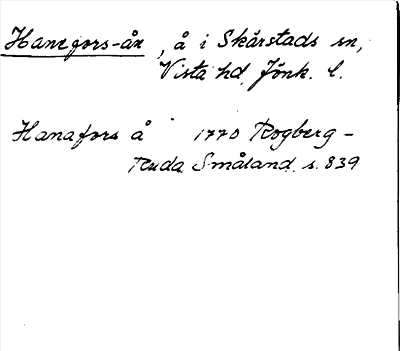 Hanefors-ån, å i Skärstads sn,
Vista hd, Jönk. l.
Hanafors å 1770 Rogberg-
Ruda Småland s. 839